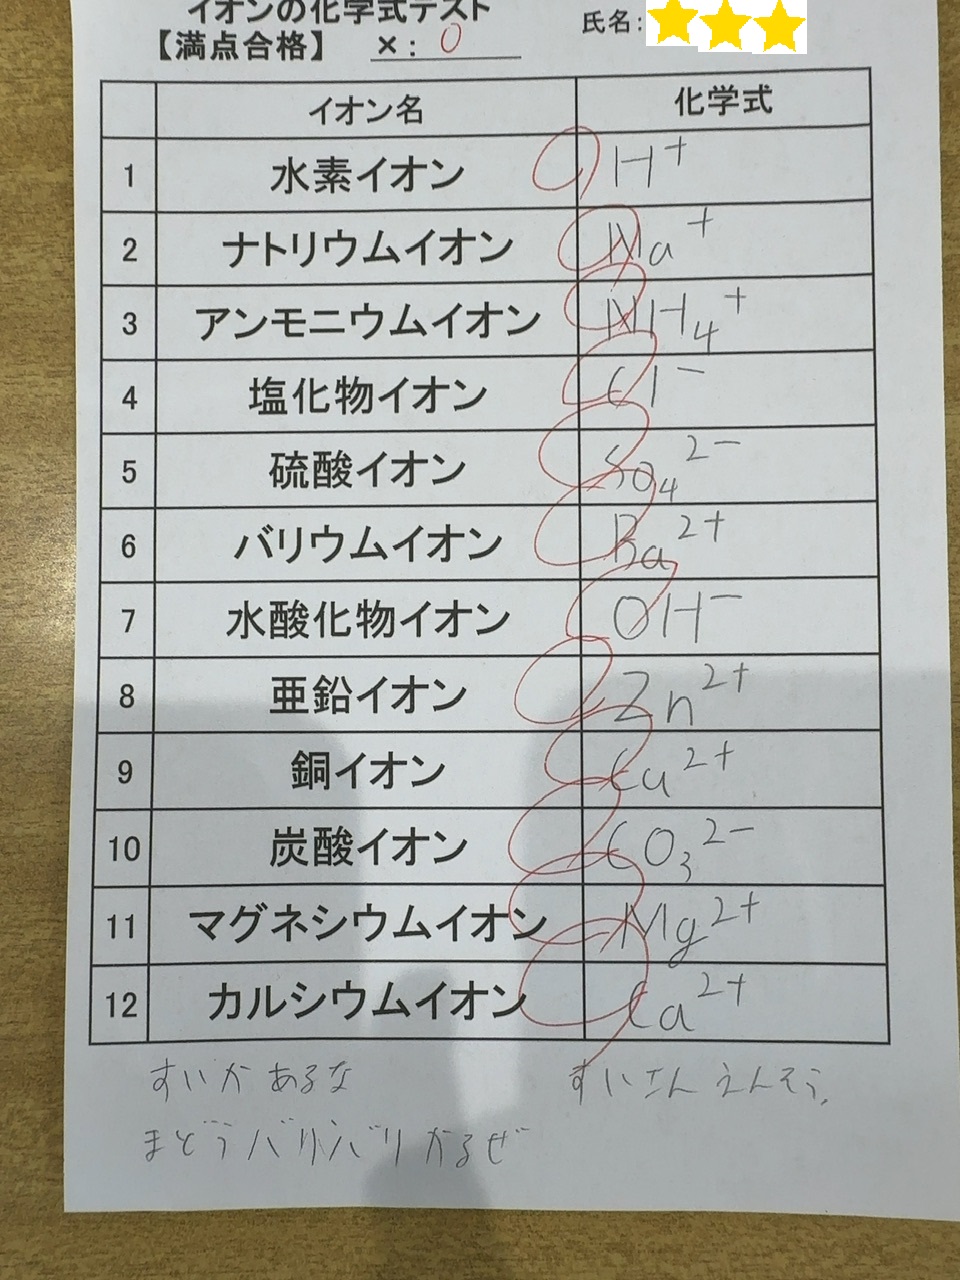 イオンの化学式テスト
【満点合格】 ×: 0 氏名:
イオン名 化学式
1 水素イオン H⁺
2 ナトリウムイオン Na⁺
3 アンモニウムイオン NH₄⁺
4 塩化物イオン Cl⁻
5 硫酸イオン SO₄²⁻
6 バリウムイオン Ba²⁺
7 水酸化物イオン OH⁻
8 亜鉛イオン Zn²⁺
9 銅イオン Cu²⁺
10 炭酸イオン CO₃²⁻
11 マグネシウムイオン Mg²⁺
12 カルシウムイオン Ca²⁺
すいか あるな すいさん えんそう。
まどう バリバリ かるぜ